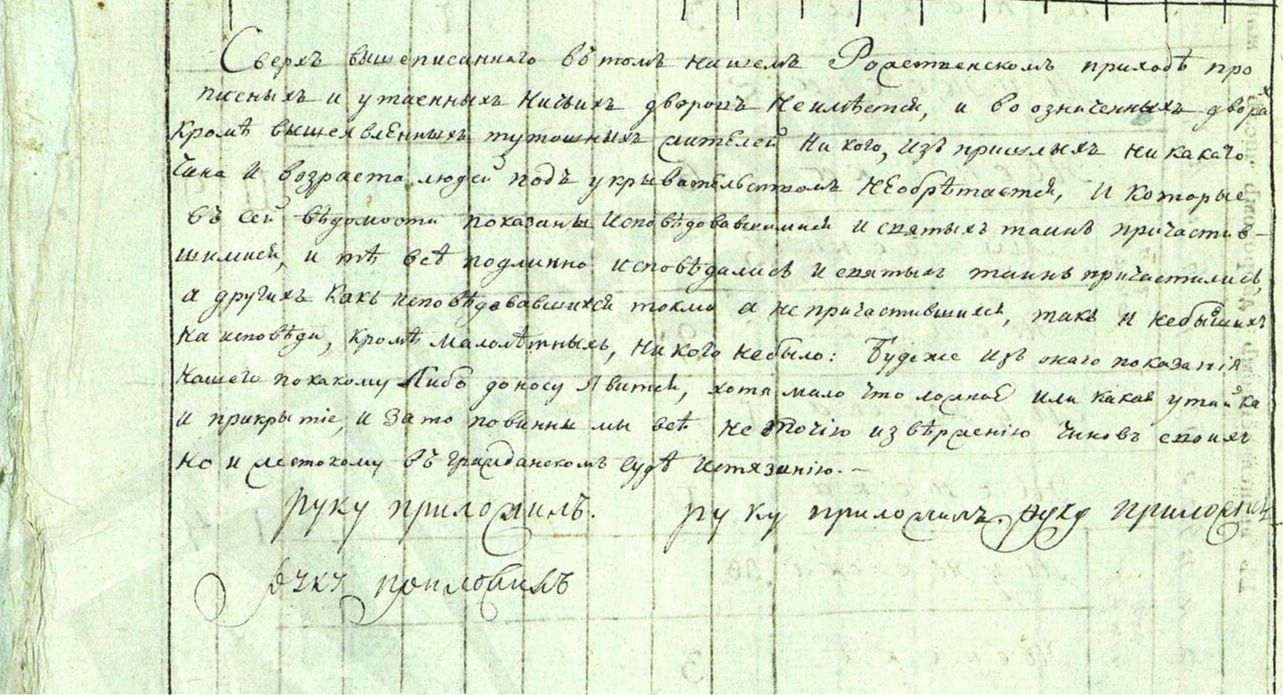 Сверхъ вышеписаннаго въ томъ нашемъ Рожественскомъ приходѣ про
писныхъ и утаенныхъ ничьихъ дворовъ неимѣется, и во означенныхъ двора
кромѣ вышеявлѣнныхъ тутошныхъ жителей никого, изъ пришлыхъ никакаго
чина и возраста людей подъ укрывательствомъ необрѣтается, и которые
въ сей вѣдомости показаны исповѣдовавшимися и святыхъ таинъ причастив-
шимися, и тѣ всѣ подлинно исповѣдались и святыхъ таинъ причастились,
а другихъ какъ исповѣдовавшихся токмо а непричастившихся, такъ и небывшихъ
на исповѣди, кромѣ малолѣтныхъ, никого небыло: Будеже изъ онаго показанія
нашего покакому либо доносу явится, хотя мало что ложноѣ или какая утайка
и прикрытіе, и зато повинны мы всѣ не точію извѣржению чиновъ своихъ
но и жестокому въ гражданскомъ судѣ истязанію. —
руку приложилъ. руку приложилъ. руку приложил
руку приложилъ